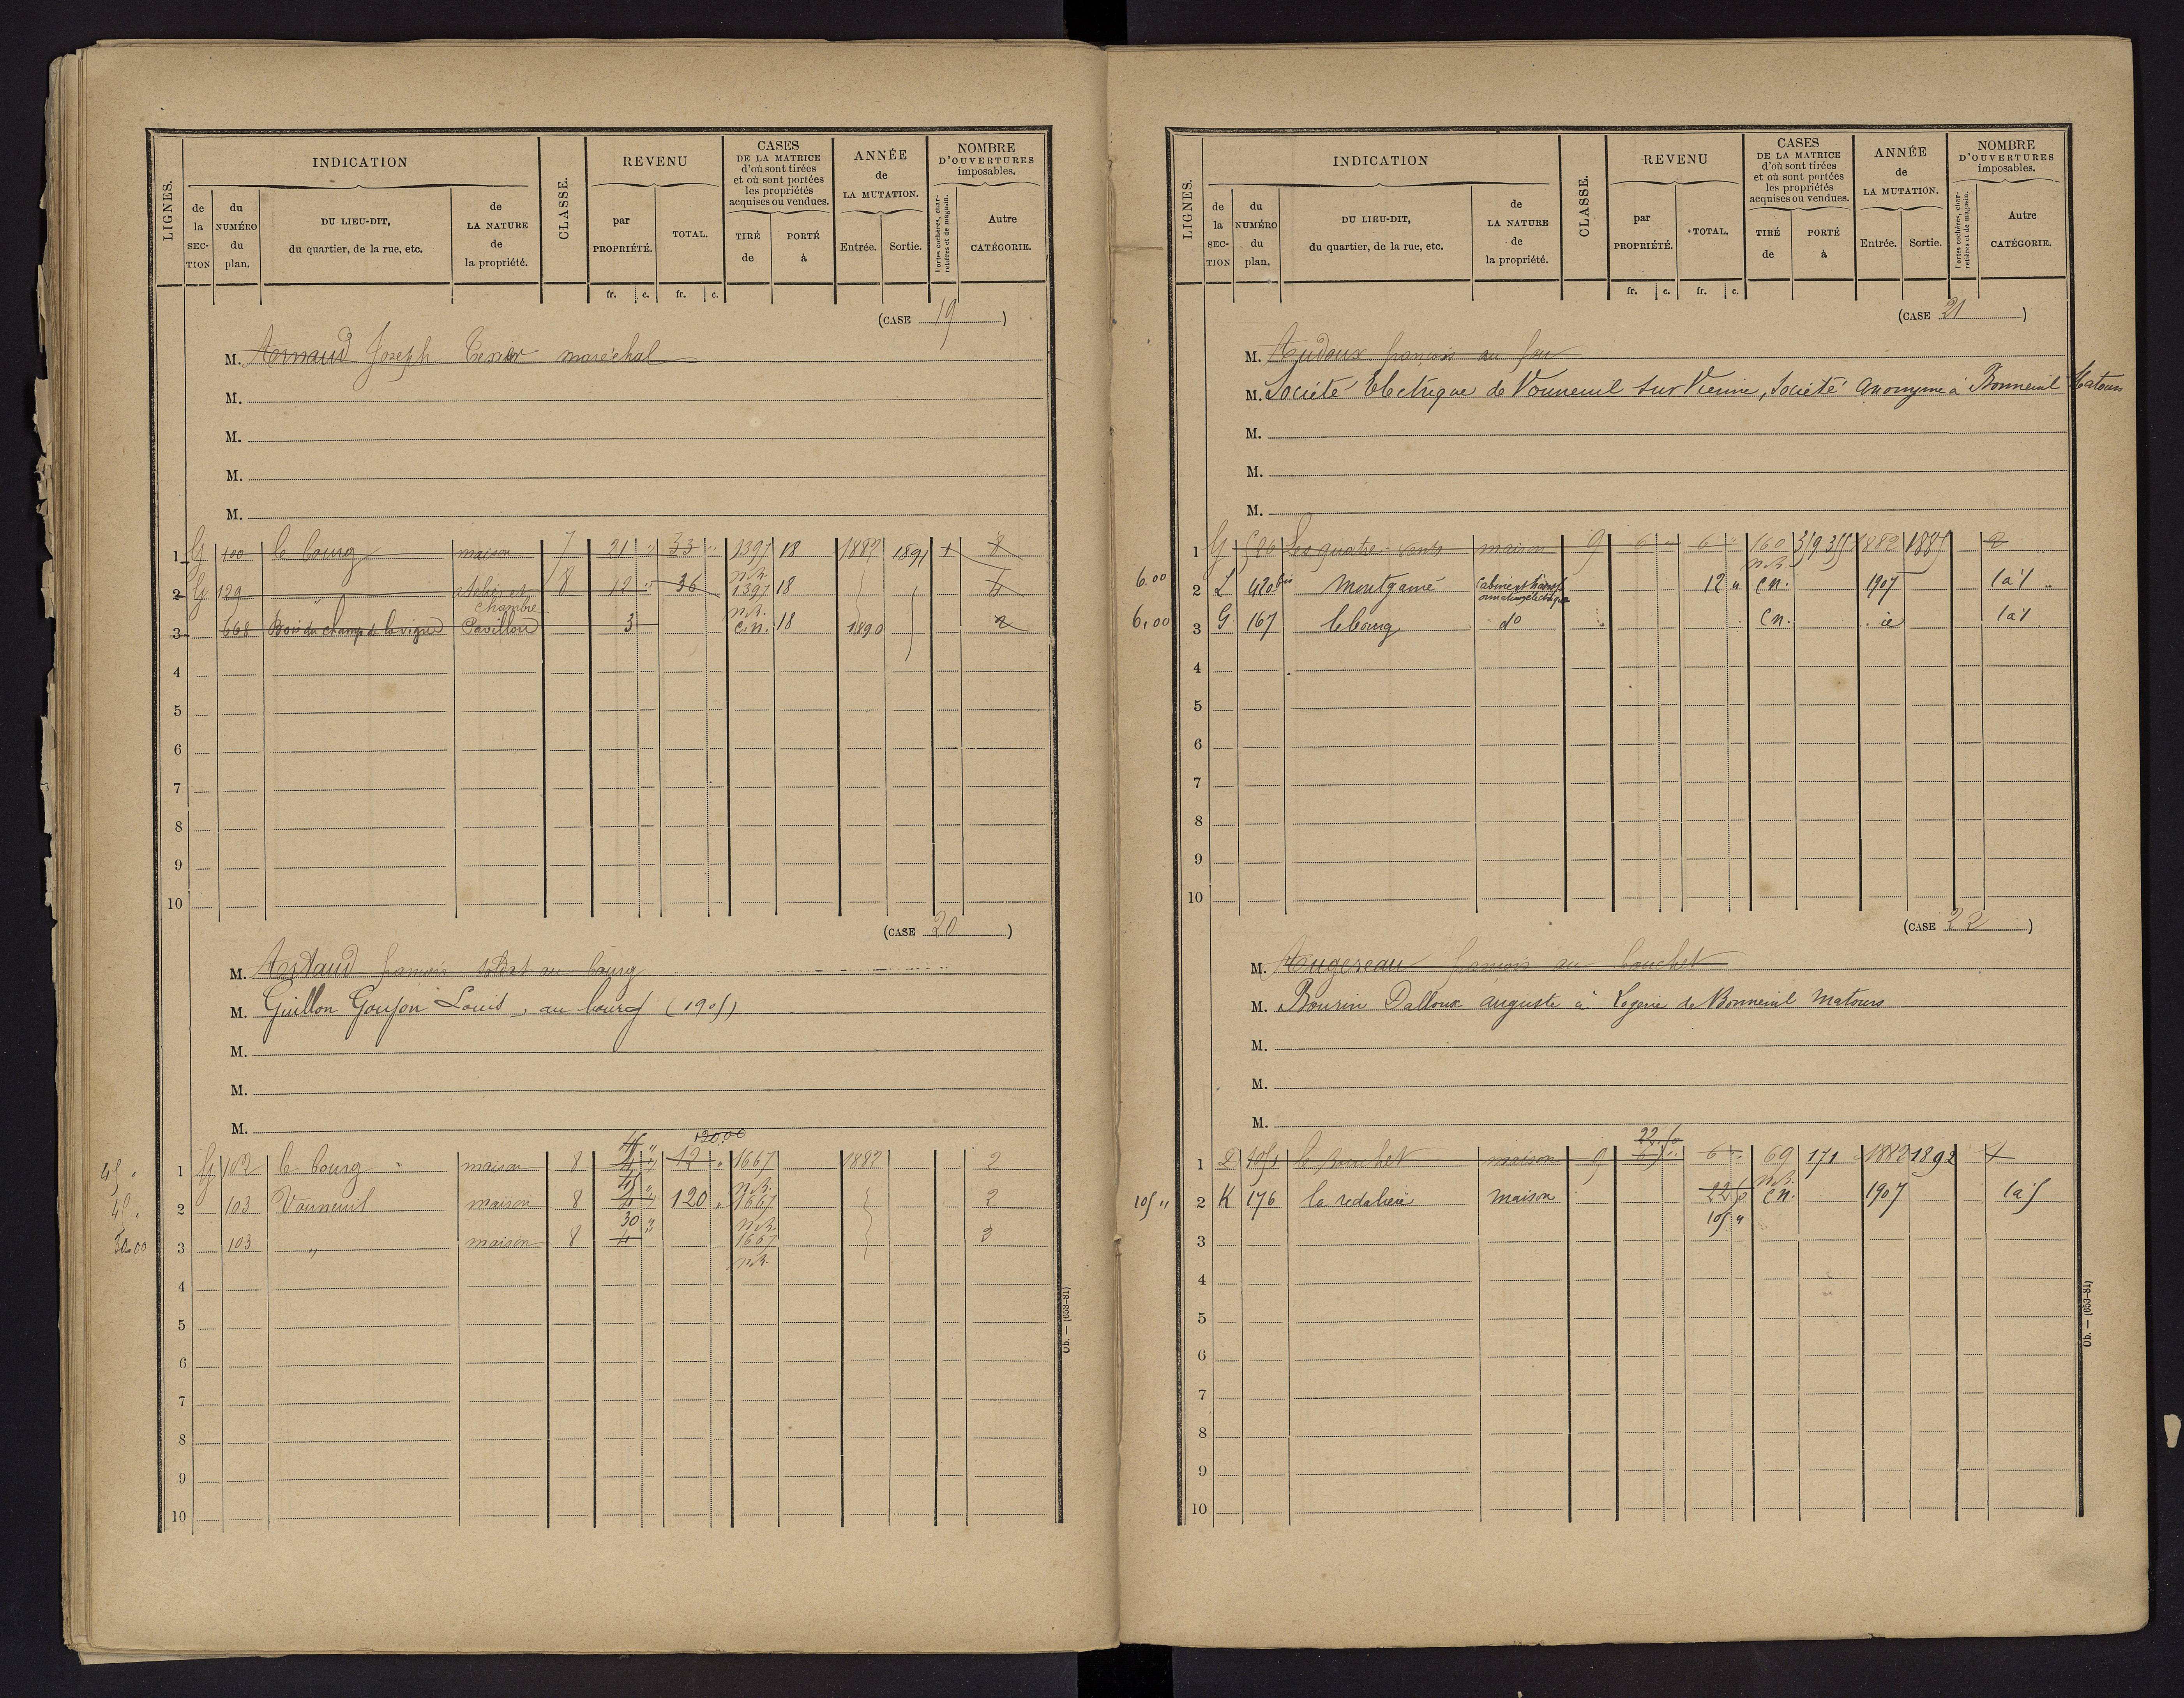 LIGNES.
INDICATION
de la SEC-TION
du NUMÉRO du plan.
DU LIEU-DIT, du quartier, de la rue, etc.
de LA NATURE de la propriété.
CLASSE.
REVENU
par PROPRIÉTÉ.
TOTAL.
CASES DE LA MATRICE d'où sont tirées et où sont portées les propriétés acquises ou vendues.
TIRÉ de
PORTÉ à
ANNÉE de LA MUTATION.
Entrée.
Sortie.
NOMBRE D'OUVERTURES imposables.
Portes cochères, charretières et de magasin.
Autre CATÉGORIE.
fr. c. fr. c.
(CASE 19)
M. Arnaud Joseph Texier maréchal
M.
M.
M.
M.
1 G 100 le bourg maison 7 21 " 33 " 1397 18 1882 1891 1 8
n.R.
2 G 129 " atelier et chambre 8 12 " 36 1397 18 4
n.R.
3 668 Bois du champ de la vigne Pavillon 3 C.n. 18 1890 2
4
5
6
7
8
9
10
(CASE 20)
M. Artaud françois soldat au bourg
M. Guillon Goujon Louis, au bourg (1905)
M.
M.
M.
120.00
45 "
45 " 1 G 102 le bourg maison 8 4 " 12 " 1667 1882 2
45 " n.R.
45 " 2 103 Vouneuil maison 8 4 " 120 " 1667 2
30 " n.R.
30.00 3 103 " maison 8 4 1667 3
n.R.
4
5
6
7
8
9
10
Ob. — (653-81)
LIGNES.
INDICATION
de la SEC-TION
du NUMÉRO du plan.
DU LIEU-DIT, du quartier, de la rue, etc.
de LA NATURE de la propriété.
CLASSE.
REVENU
par PROPRIÉTÉ.
TOTAL.
CASES DE LA MATRICE d'où sont tirées et où sont portées les propriétés acquises ou vendues.
TIRÉ de
PORTÉ à
ANNÉE de LA MUTATION.
Entrée.
Sortie.
NOMBRE D'OUVERTURES imposables.
Portes cochères, charretières et de magasin.
Autre CATÉGORIE.
fr. c. fr. c.
(CASE 21)
M. Audoux françois au fou
M. Société Electrique de Vouneuil sur Vienne, Société Anonyme à Bonneuil Matours
M.
M.
M.
1 G 586 Les quatre vents maison 9 6 " 6 " 160 1882 1885 2
n.R.
6.00 2 L 420 bis Montgamé Cabine et transformateur électrique 12 " C.n. 1907 1 à 1
6,00 3 G 167 le bourg do C.n. id 1 à 1
4
5
6
7
8
9
10
(CASE 22)
M. Augereau françois au bouchet
M. Bourin Dalloux auguste à Logerie de Bonneuil Matours
M.
M.
M.
22.50
1 D 1051 le bouchet maison 9 6 " 69 171 1882 1892 1
n.R.
105 " 2 K 176 la redalière Maison 22 50 C.n. 1907 1 à 5
105 "
3
4
5
6
7
8
9
10
Ob. — (653-81)